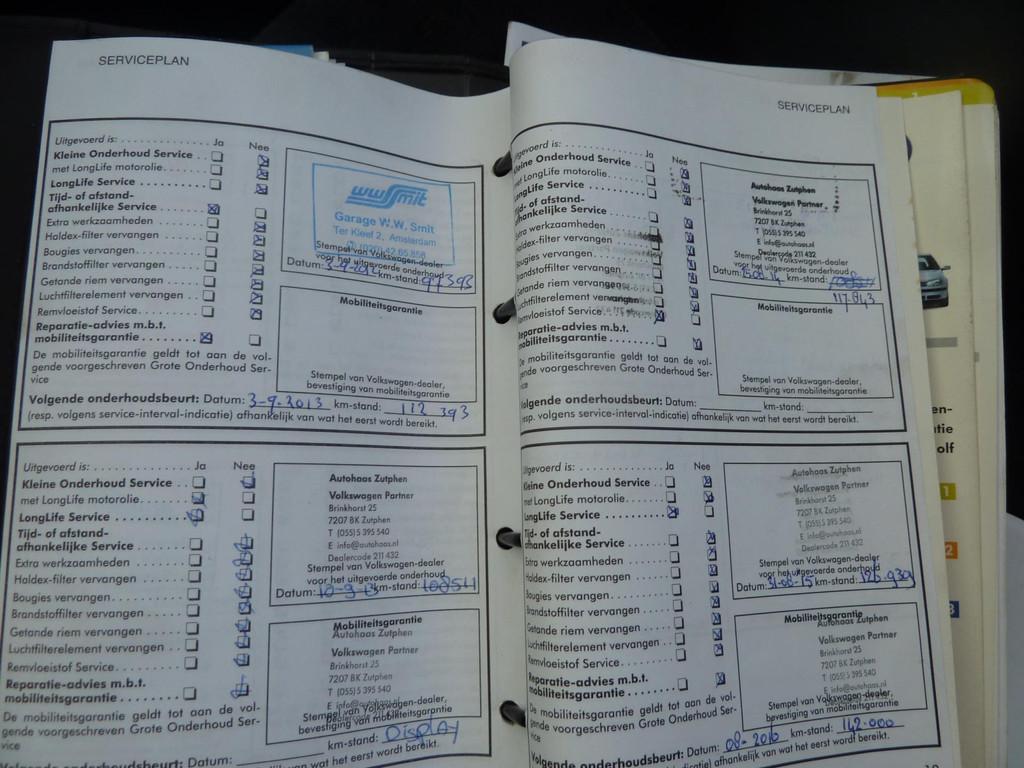 SERVICEPLAN
Uitgevoerd is: Ja Nee
Kleine Onderhoud Service
met LongLife motorolie
LongLife Service
Tijd- of afstand-
afhankelijke Service
Extra werkzaamheden
Haldex-filter vervangen
Bougies vervangen
Brandstoffilter vervangen
Getande riem vervangen
Luchtfilterelement vervangen
Remvloeistof Service
Reparatie-advies m.b.t.
mobiliteitsgarantie
De mobiliteitsgarantie geldt tot aan de vol-
gende voorgeschreven Grote Onderhoud Ser-
vice
wwSmit
Garage W.W. Smit
Ter Kleef 2, Amsterdam
Stempel van Volkswagen-dealer
voor het uitgevoerde onderhoud
Datum: km-stand: 97393
Mobiliteitsgarantie
Stempel van Volkswagen-dealer,
bevestiging van mobiliteitsgarantie
Volgende onderhoudsbeurt: Datum: 3-9-2013 km-stand: 112 393
(resp. volgens service-interval-indicatie) afhankelijk van wat het eerst wordt bereikt.
Uitgevoerd is: Ja Nee
Kleine Onderhoud Service
met LongLife motorolie
LongLife Service
Tijd- of afstand-
afhankelijke Service
Extra werkzaamheden
Haldex-filter vervangen
Bougies vervangen
Brandstoffilter vervangen
Getande riem vervangen
Luchtfilterelement vervangen
Remvloeistof Service
Reparatie-advies m.b.t.
mobiliteitsgarantie
De mobiliteitsgarantie geldt tot aan de vol-
gende voorgeschreven Grote Onderhoud Ser-
vice
Autohaas Zutphen
Volkswagen Partner
Brinkhorst 25
7207 BK Zutphen
T (055) 5 395 540
E info@autohaas.nl
Dealercode 211 432
Stempel van Volkswagen-dealer
voor het uitgevoerde onderhoud
Datum: km-stand: 108511
Mobiliteitsgarantie
Autohaas Zutphen
Volkswagen Partner
Brinkhorst 25
7207 BK Zutphen
T (055) 5 395 540
E info@autohaas.nl
Stempel van Volkswagen-dealer,
bevestiging van mobiliteitsgarantie
km-stand: Display
Volgende onderhoudsbeurt: Datum:
afhankelijk van wat het eerst wordt bereikt.
SERVICEPLAN
Uitgevoerd is: Ja Nee
Kleine Onderhoud Service
met LongLife motorolie
LongLife Service
Tijd- of afstand-
afhankelijke Service
Extra werkzaamheden
Haldex-filter vervangen
Bougies vervangen
Brandstoffilter vervangen
Getande riem vervangen
Luchtfilterelement vervangen
Remvloeistof Service
Reparatie-advies m.b.t.
mobiliteitsgarantie
De mobiliteitsgarantie geldt tot aan de vol-
gende voorgeschreven Grote Onderhoud Ser-
vice
Autohaas Zutphen
Volkswagen Partner
Brinkhorst 25
7207 BK Zutphen
T (055) 5 395 540
E info@autohaas.nl
Dealercode 211 432
Stempel van Volkswagen-dealer
voor het uitgevoerde onderhoud
Datum: km-stand:
117.843
Mobiliteitsgarantie
Stempel van Volkswagen-dealer,
bevestiging van mobiliteitsgarantie
Volgende onderhoudsbeurt: Datum: km-stand:
(resp. volgens service-interval-indicatie) afhankelijk van wat het eerst wordt bereikt.
Uitgevoerd is: Ja Nee
Kleine Onderhoud Service
met LongLife motorolie
LongLife Service
Tijd- of afstand-
afhankelijke Service
Extra werkzaamheden
Haldex-filter vervangen
Bougies vervangen
Brandstoffilter vervangen
Getande riem vervangen
Luchtfilterelement vervangen
Remvloeistof Service
Reparatie-advies m.b.t.
mobiliteitsgarantie
De mobiliteitsgarantie geldt tot aan de vol-
gende voorgeschreven Grote Onderhoud Ser-
vice
Autohaas Zutphen
Volkswagen Partner
Brinkhorst 25
7207 BK Zutphen
T (055) 5 395 540
E info@autohaas.nl
Dealercode 211 432
Stempel van Volkswagen-dealer
voor het uitgevoerde onderhoud
Datum: 31-08-15 km-stand: 126.939
Mobiliteitsgarantie
Autohaas Zutphen
Volkswagen Partner
Brinkhorst 25
7207 BK Zutphen
T (055) 5 395 540
E info@autohaas.nl
Stempel van Volkswagen-dealer,
bevestiging van mobiliteitsgarantie
Volgende onderhoudsbeurt: Datum: 08-2016 km-stand: 142.000
afhankelijk van wat het eerst wordt bereikt.
en-
tie
olf
1
2
3